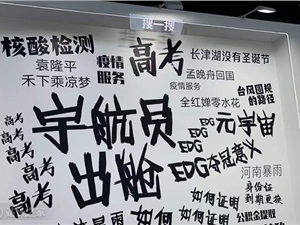 搜一搜
核酸检测
疫情
服务
高考
长津湖没有圣诞节
袁隆平
禾下乘凉梦
孟晚舟回国
疫情服务
台风圆规
的路径
全红婵零水花
宇航员
EDG
元宇宙
EDG
EDG夺冠意义
高考
高考
高考
高考
高考
出舱
河南暴雨
身份证
到期更换
如何证明
如何证明
公积金提取